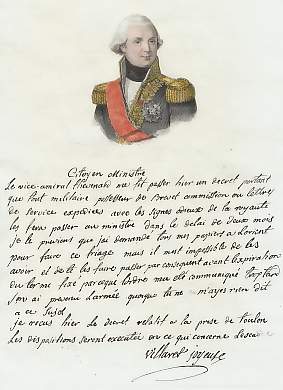 Citoyen Ministre
Le vice-amiral thevenard me fit passer hier un decret portant
que tout militaire possesseur de brevet commission ou lettres
de service expediées avec les signes odieux de la royauté
les fera passer au ministre dans le delai de deux mois
je te previens que j'ai demandé tous mes papiers a Lorient
pour faire ce triage mais il m'est impossible de les
avoir et de te les faire passer par consequent avant l'expiration
du terme fixé parceque l'ordre m'a été communiqué trop tard
j'en ai prevenu l'armée quoique tu ne n'ayes rien dit
a ce sujet
je recois hier le decret relatif a la prise de toulon
les dispositions seront executées en ce qui concerne l'escadre
Villaret joyeuse